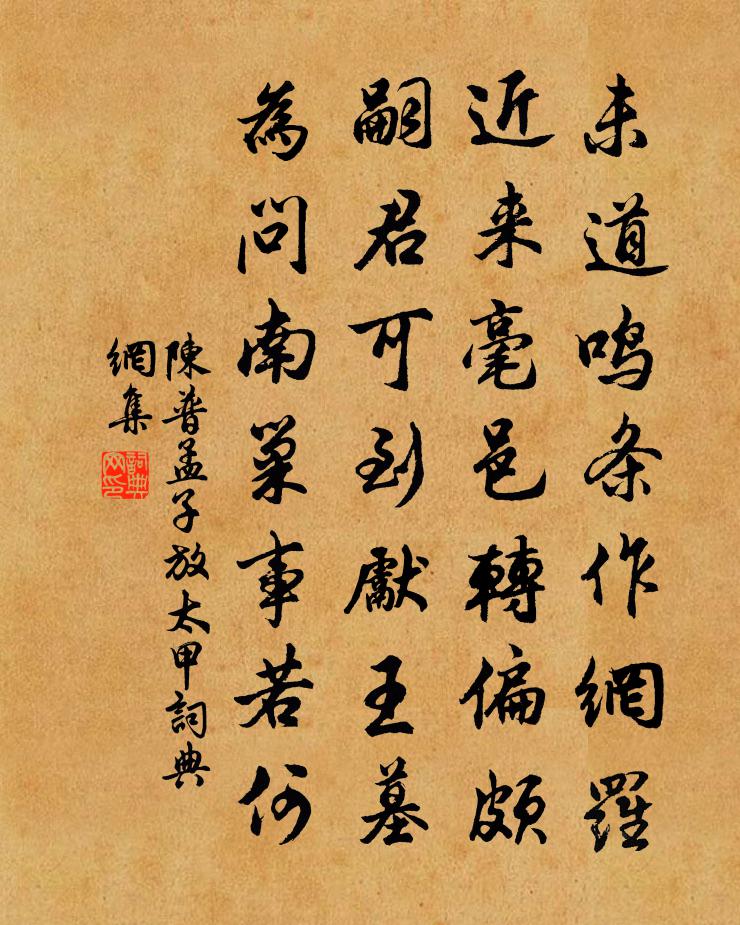 未道鳴条作網羅
近来毫邑轉偏頗
嗣君可到獻王墓
為問南巢事若何
陳普孟子放太甲詞典
網集
詞典網印